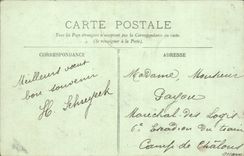 CARTE POSTALE
Tous les Pays étrangers n'acceptent pas la Correspondance au recto
(Se renseigner à la Poste).
CORRESPONDANCE
ADRESSE
Meilleurs vœux
bon souvenir
H.
Madame Monsieur
Payon
Marechal des Logis
Escadron du train
Camp de Châlons